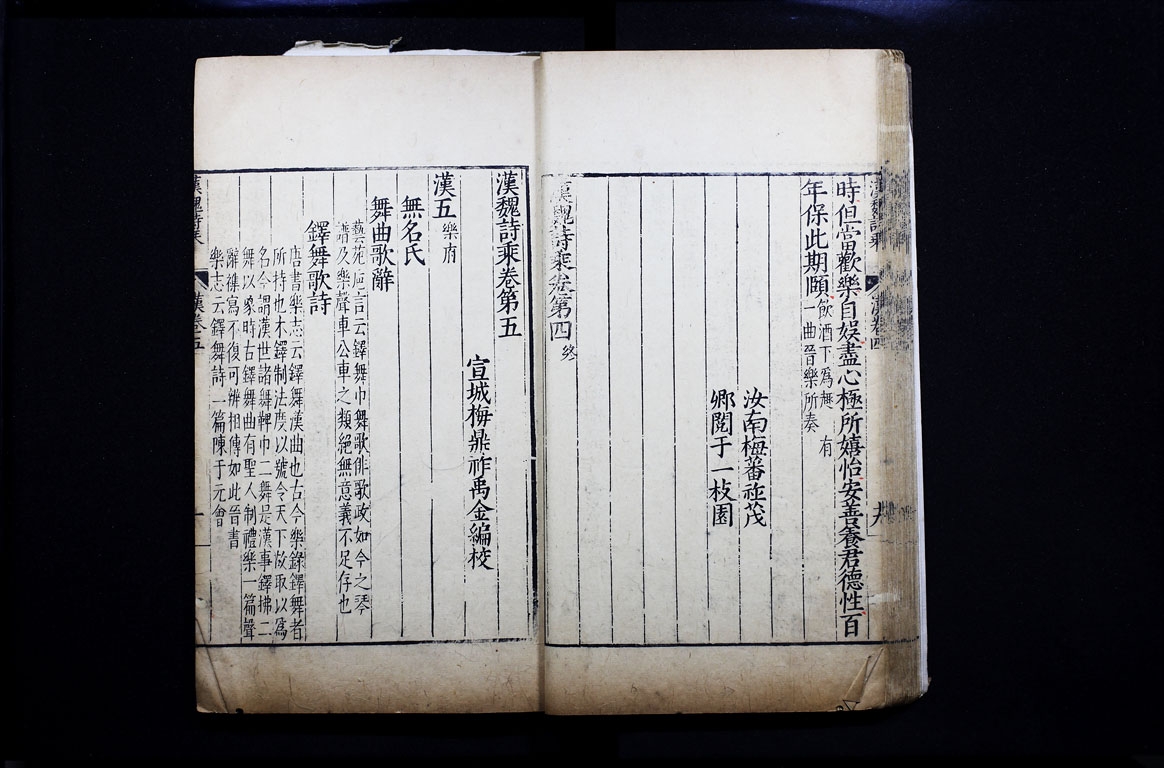 漢魏詩乘 漢卷四
時但當歡樂自娛盡心極所嬉怡安善養君德性百
年保此期頤飲酒下為趣 有
一曲晉樂所奏
汝南梅蕃祚茂
鄉閱于一枝園
漢魏詩乘卷第四終
漢魏詩乘卷第五
宣城梅鼎祚禹金編校
漢五樂府
無名氏
舞曲歌辭
藝苑卮言云鐸舞巾舞歌俳歌政如今之琴
譜及樂聲車公車之類絕無意義不足存也
鐸舞歌詩
唐書樂志云鐸舞漢曲也古今樂錄鐸舞者
所持也木鐸制法度以號令天下故取以為
名今謂漢世諸舞鞞巾二舞是漢事鐸拂二
舞以象時古鐸舞曲有聖人制禮樂一篇聲
辭雜寫不復可辨相傳如此晉書
樂志云鐸舞詩一篇陳于元會
漢魏詩乘 漢卷五 一